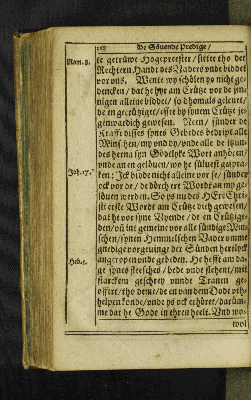 218
De Sövende Predige /
Rom. 8.
te getrüwe Hogepreester / sittet tho der
Rechtern Handt des Vaders vnde biddet
vor vns. Wente wy schölen ys nicht ge-
dencken / dat he hyr am Crütze vor de jen-
nigen alleine biddet / so dhomals geleuet /
de en gecrütziget / effte by synem Crütze je-
genwardich gewesen. Neen / sünder de
Krafft disses synes Gebedes bedript alle
Minschen / my vnd dy / vnde alle de itzun-
des herna syn Gödelyke Wort anhören /
vnde an en gelöuen / wo he süluest gespra-
Joh. 17.
ken: Ick bidde nicht alleine vor se / sünder
ock vor de / de dörch ere Wordt an my ge-
löuen werden. So ys nu des HEren Chri-
sti erste Wordt am Crütze dith gewesen /
dat he vor syne Vyende / de en Crützige-
den / vñ int gemeine vor alle sündige Min-
schen / synen Hemmelschen Vader vmme
gnedige vorgeuinge der Sünden hertlyck
angeropen vnde gebeden. He hefft am da-
Heb. 5.
ge synes fleesches / bede vnde flehent / mit
starckem geschrey vnde Tranen ge-
offert / tho deme / de en van dem Dode vth-
helpen konde / vnde ys ock erhöret / darüm-
me dat he Gode in ehren heelt. Vnd wo-
wol